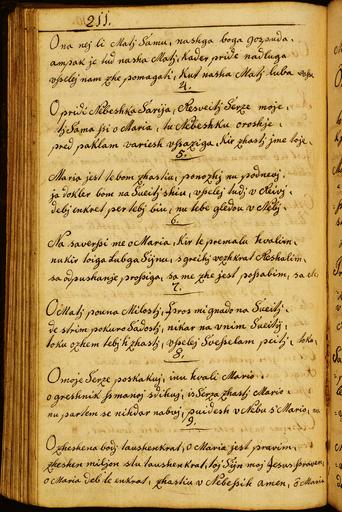 211.
Ona nej li Matj Samu, nashga boga gospuda.
ampak je tud nasha Matj, kader pride nadluga
vselej nam zhe pomagati, Kut nasha Matj luba
4.
O pridi Nebeshka Sarija, Resveitj Serze moje,
tj Sama si o Maria, tu Nebeshku oroshje,
pred paklam variesh vsaziga, Kir zhastj jme toje,
5.
Maria jest tebom zhastiu, ponozhj nu podnevj,
ja dokler bom na Sveitj shiu, vselej tudj v Reivj,
debj enkret per tebj biu, nu tebe gledou v Nebj.
6.
Na saversi me o Maria, Kir te premalu hvalim,
nu kir toiga lubga Sijnu, s'greihj vezhkrat Reshalim,
sa odpushanje prosiga, sa me zhe jest posabim,
7.
O Matj pouna Milostj, spros mi gnado na Sveitj.
de strim pokuro Sadostj, nikar na vnim Sveitij
toku ozhem tebj h'zhastj, vselej Svesselam peitj,
8.
O moje Serze poskakuj, inu hvali Mario.
o greshnik smanoj sdihuj, is Serza zhastj Mario.
nu partem se nikdar nabuj, puidesh v Nebu s'Mario,
9.
O zheshena bodj taushenkrat, o Maria jest pravim,
zheshen miljon stu taushenkrat, toj Sijn moj Jesus
o Maria deb te enkrat, zhastiu v Nebesih amen, o Maria